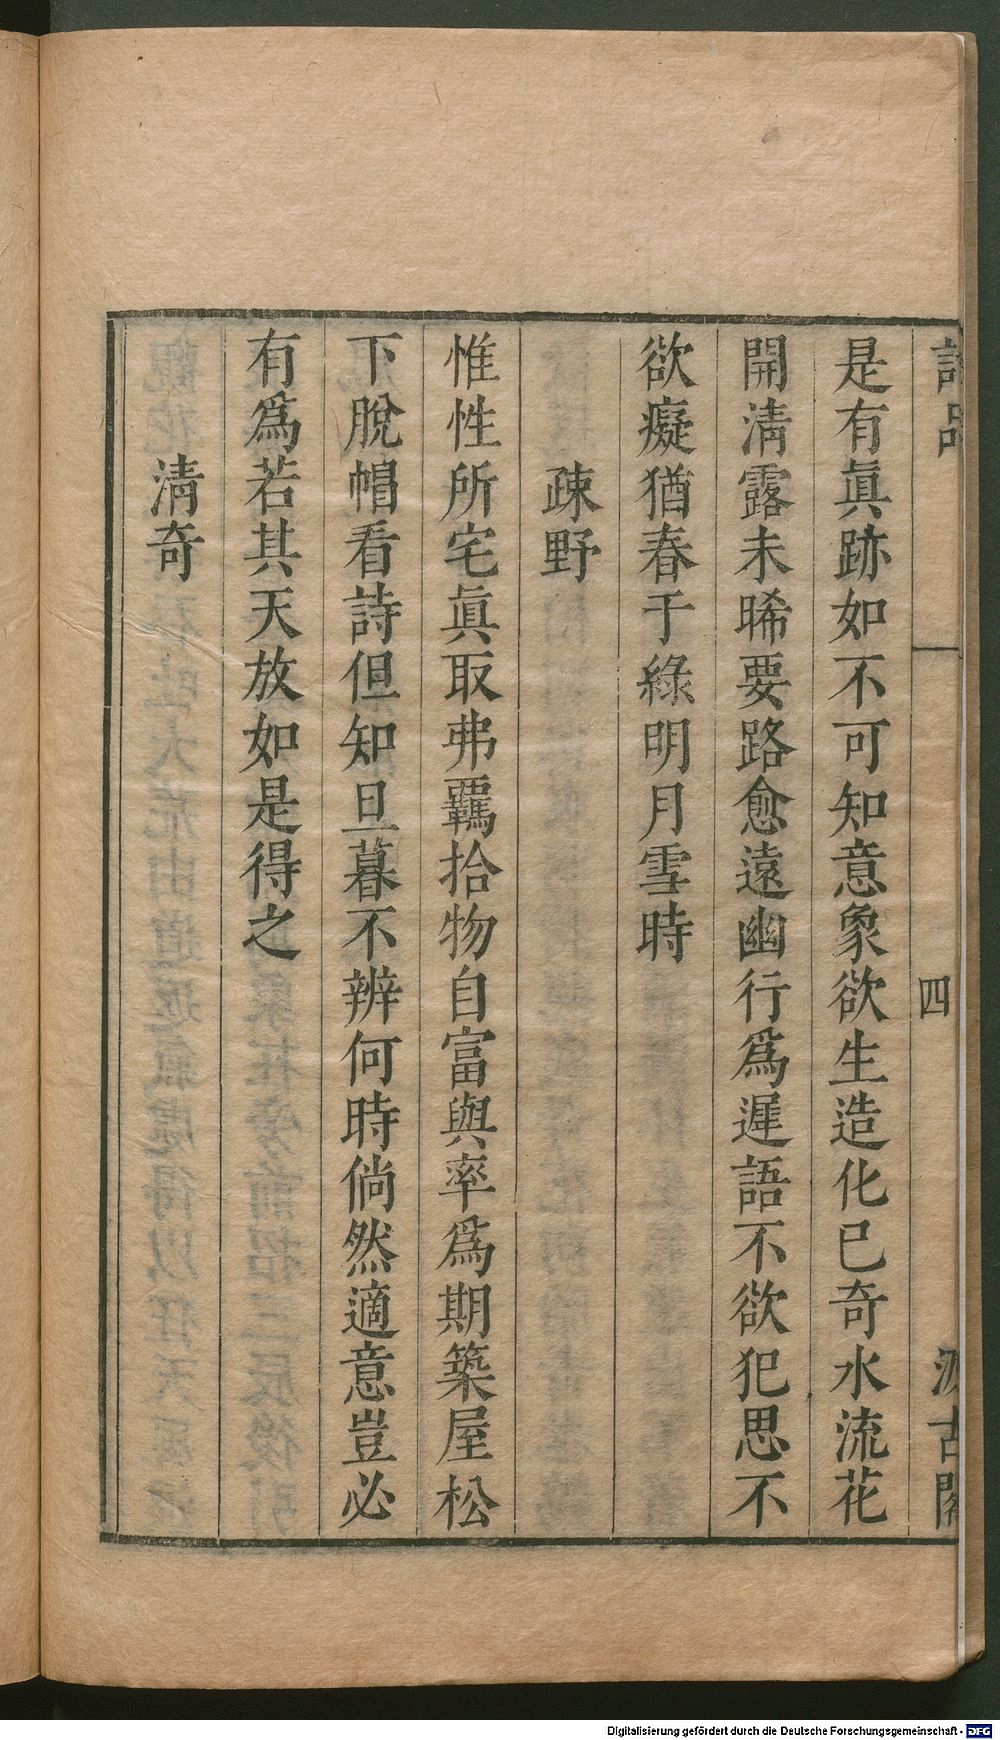 詩品
四
汲古閣
是有眞跡如不可知意象欲生造化已奇水流花
開淸露未晞要路愈遠幽行爲遲語不欲犯思不
欲癡猶春于綠明月雪時
疎野
惟性所宅眞取弗羈拾物自富與率爲期築屋松
下脫帽看詩但知旦暮不辨何時倘然適意豈必
有爲若其天放如是得之
淸奇
Digitalisierung gefördert durch die Deutsche Forschungsgemeinschaft - DFG